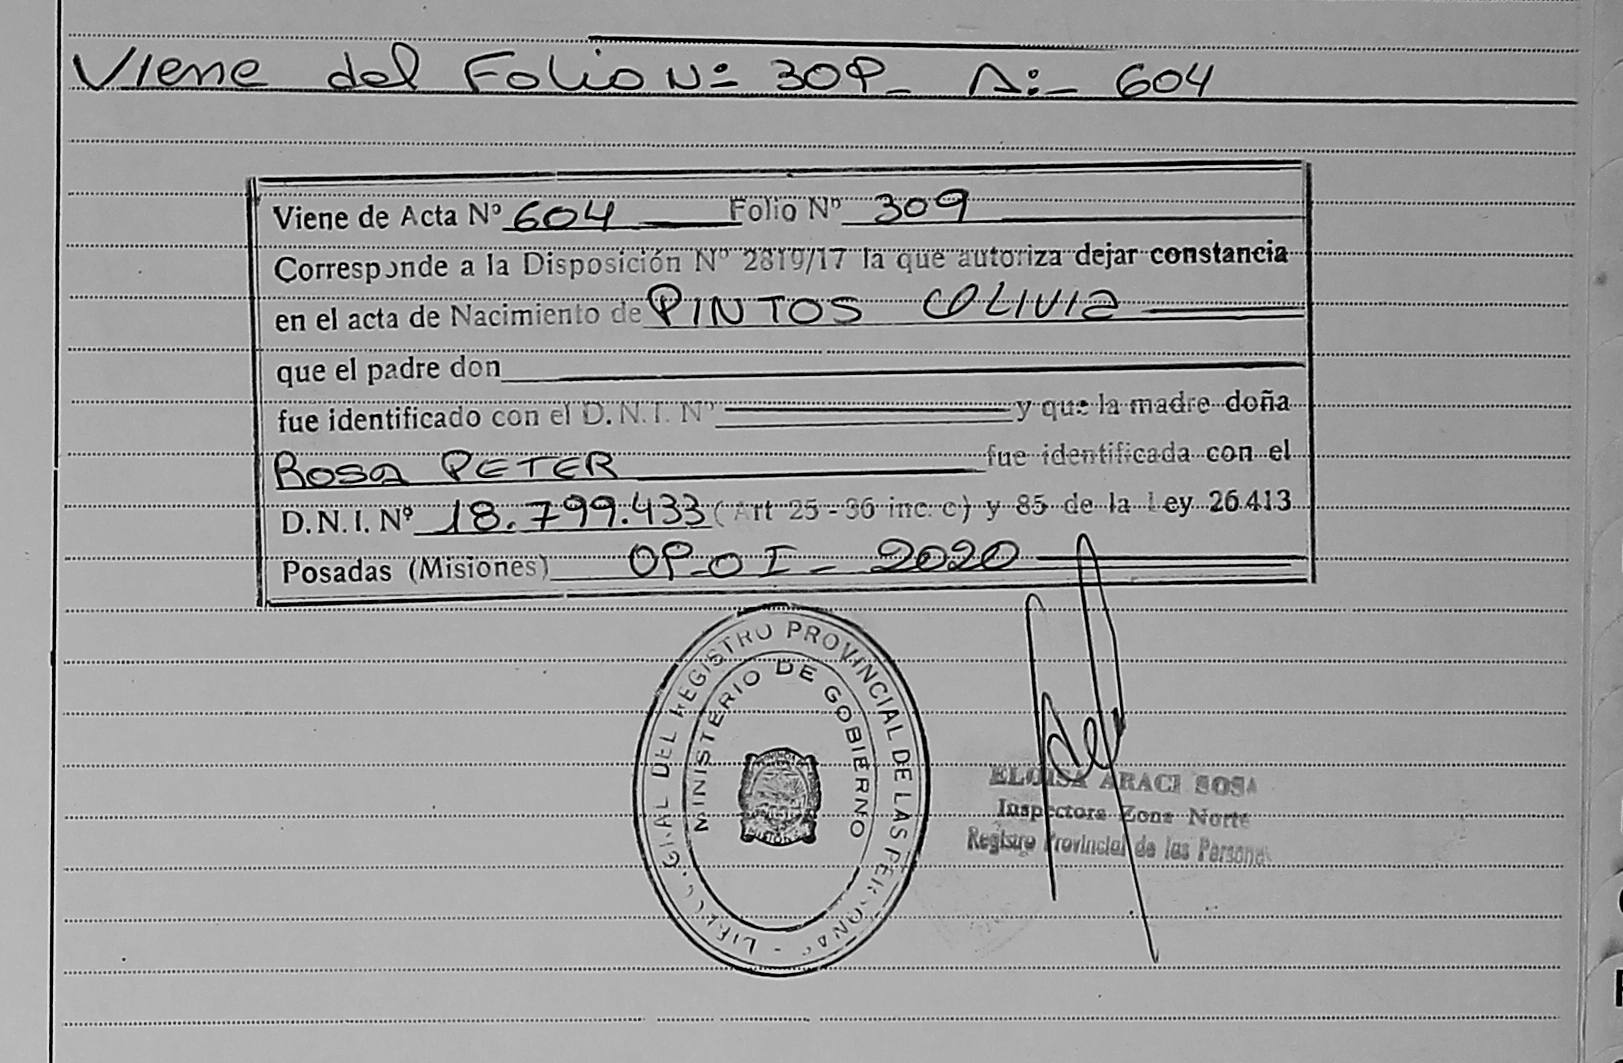 Viene del Folio Nº 309_ A:_ 604
Viene de Acta Nº 604 Folio Nº 309
Corresponde a la Disposición Nº 2819/17 la que autoriza dejar constancia
en el acta de Nacimiento de PINTOS OLIVIA
que el padre don
fue identificado con el D.N.I. Nº y que la madre doña
ROSA PETER fue identificada con el
D.N.I. Nº 18.799.433 (Art 25 - 36 inc. c) y 85 de la Ley 26.413
Posadas (Misiones) 09_01_2020
DEL REGISTRO PROVINCIAL DE LAS PERSONAS
MINISTERIO DE GOBIERNO
ELOISA ARACI SOSA
Inspectora Zona Norte
Registro Provincial de las Personas